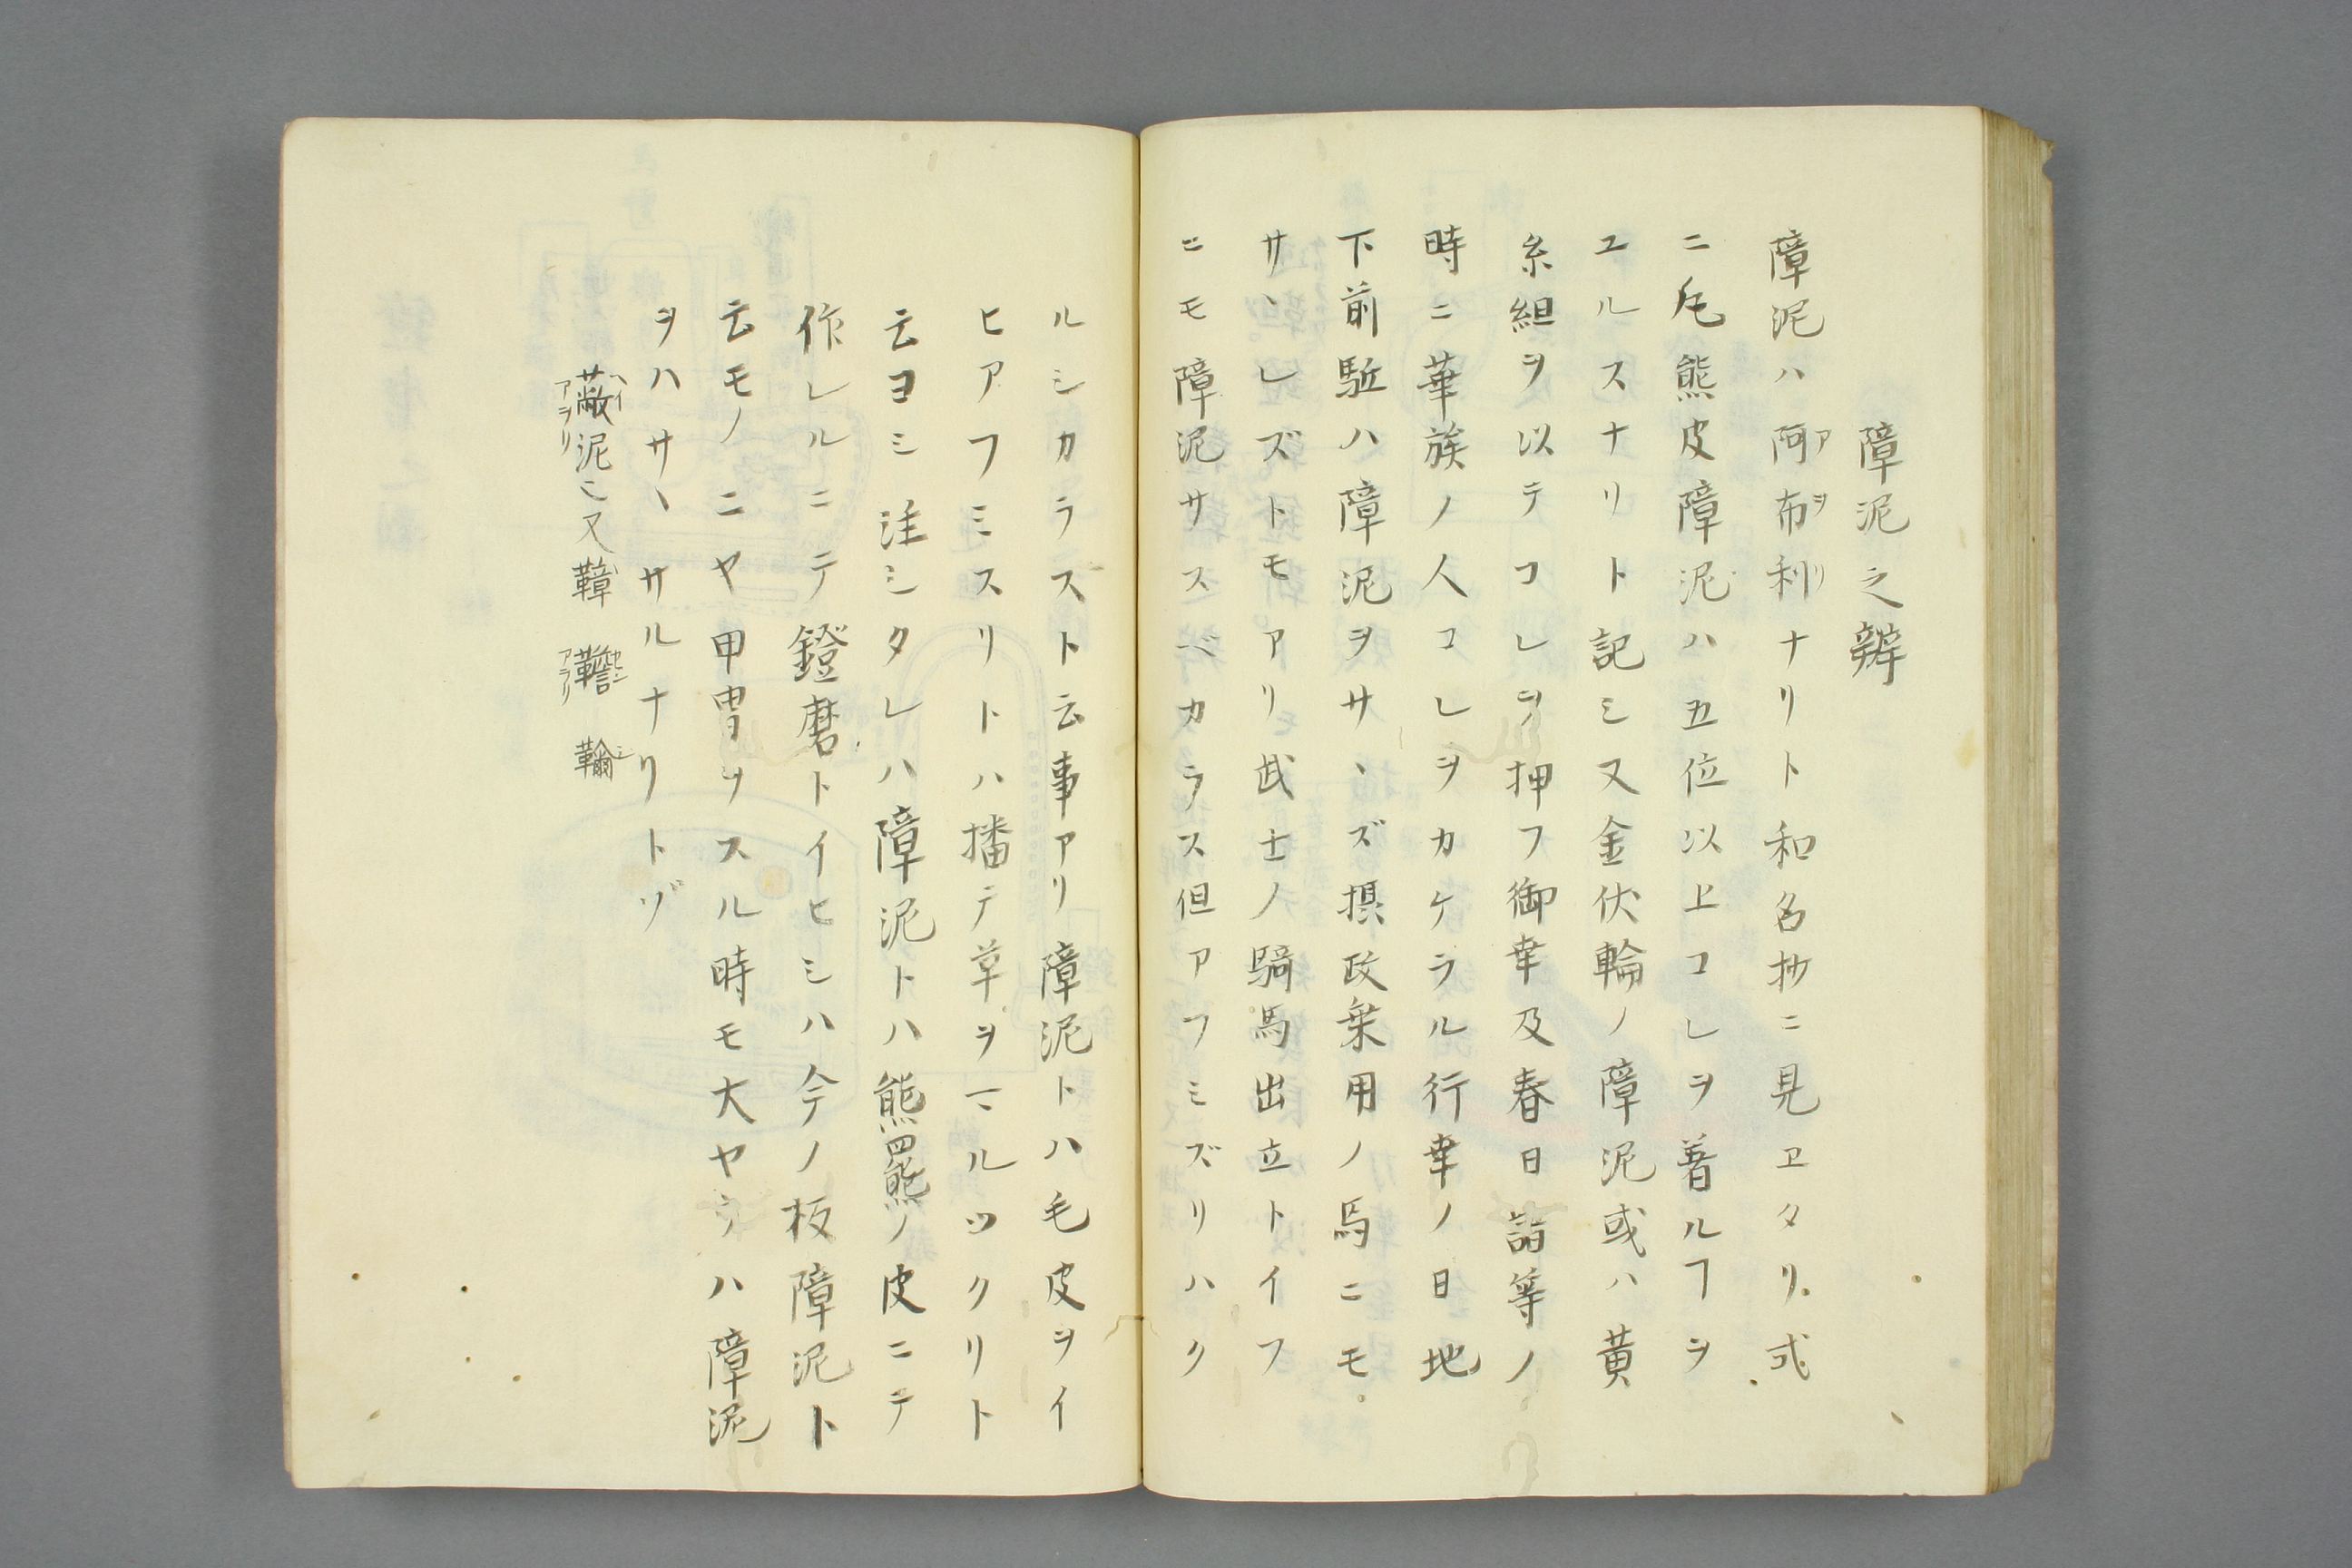 障泥之辨
障泥ハ阿布利ナリト和名抄ニ見ヱタリ式
アヲリ
ニ凡熊皮障泥ハ五位以上コレヲ着ルヿヲ
ユルスナリト記ミ又金伏輪ノ障泥或ハ黄
糸組ヲ以テコレヲ押フ御幸及春日詣等ノ
時ニ華族ノ人コレヲカケラル行幸ノ日地
下前駈ハ障泥ヲサヽズ摂政乗用ノ馬ニモ
サヽレズトモアリ武士ノ騎馬出立トイフ
ニモ障泥サスベカラス但アフミズリハク
ルシカラスト云事アリ障泥トハ毛皮ヲイ
ヒアフミスリトハ播テ草ヲマルツクリト
云ヨミ注シタレハ障泥トハ熊羆ノ皮ニテ
作レルニテ鐙磨トイヒミハ今ノ板障泥ト
云モノニヤ甲冑ヲスル時モ大ヤウハ障泥
ヲハサヽサルナリトゾ
蔽泥 又鞾
ヘイ
アヲリ
アヲリ